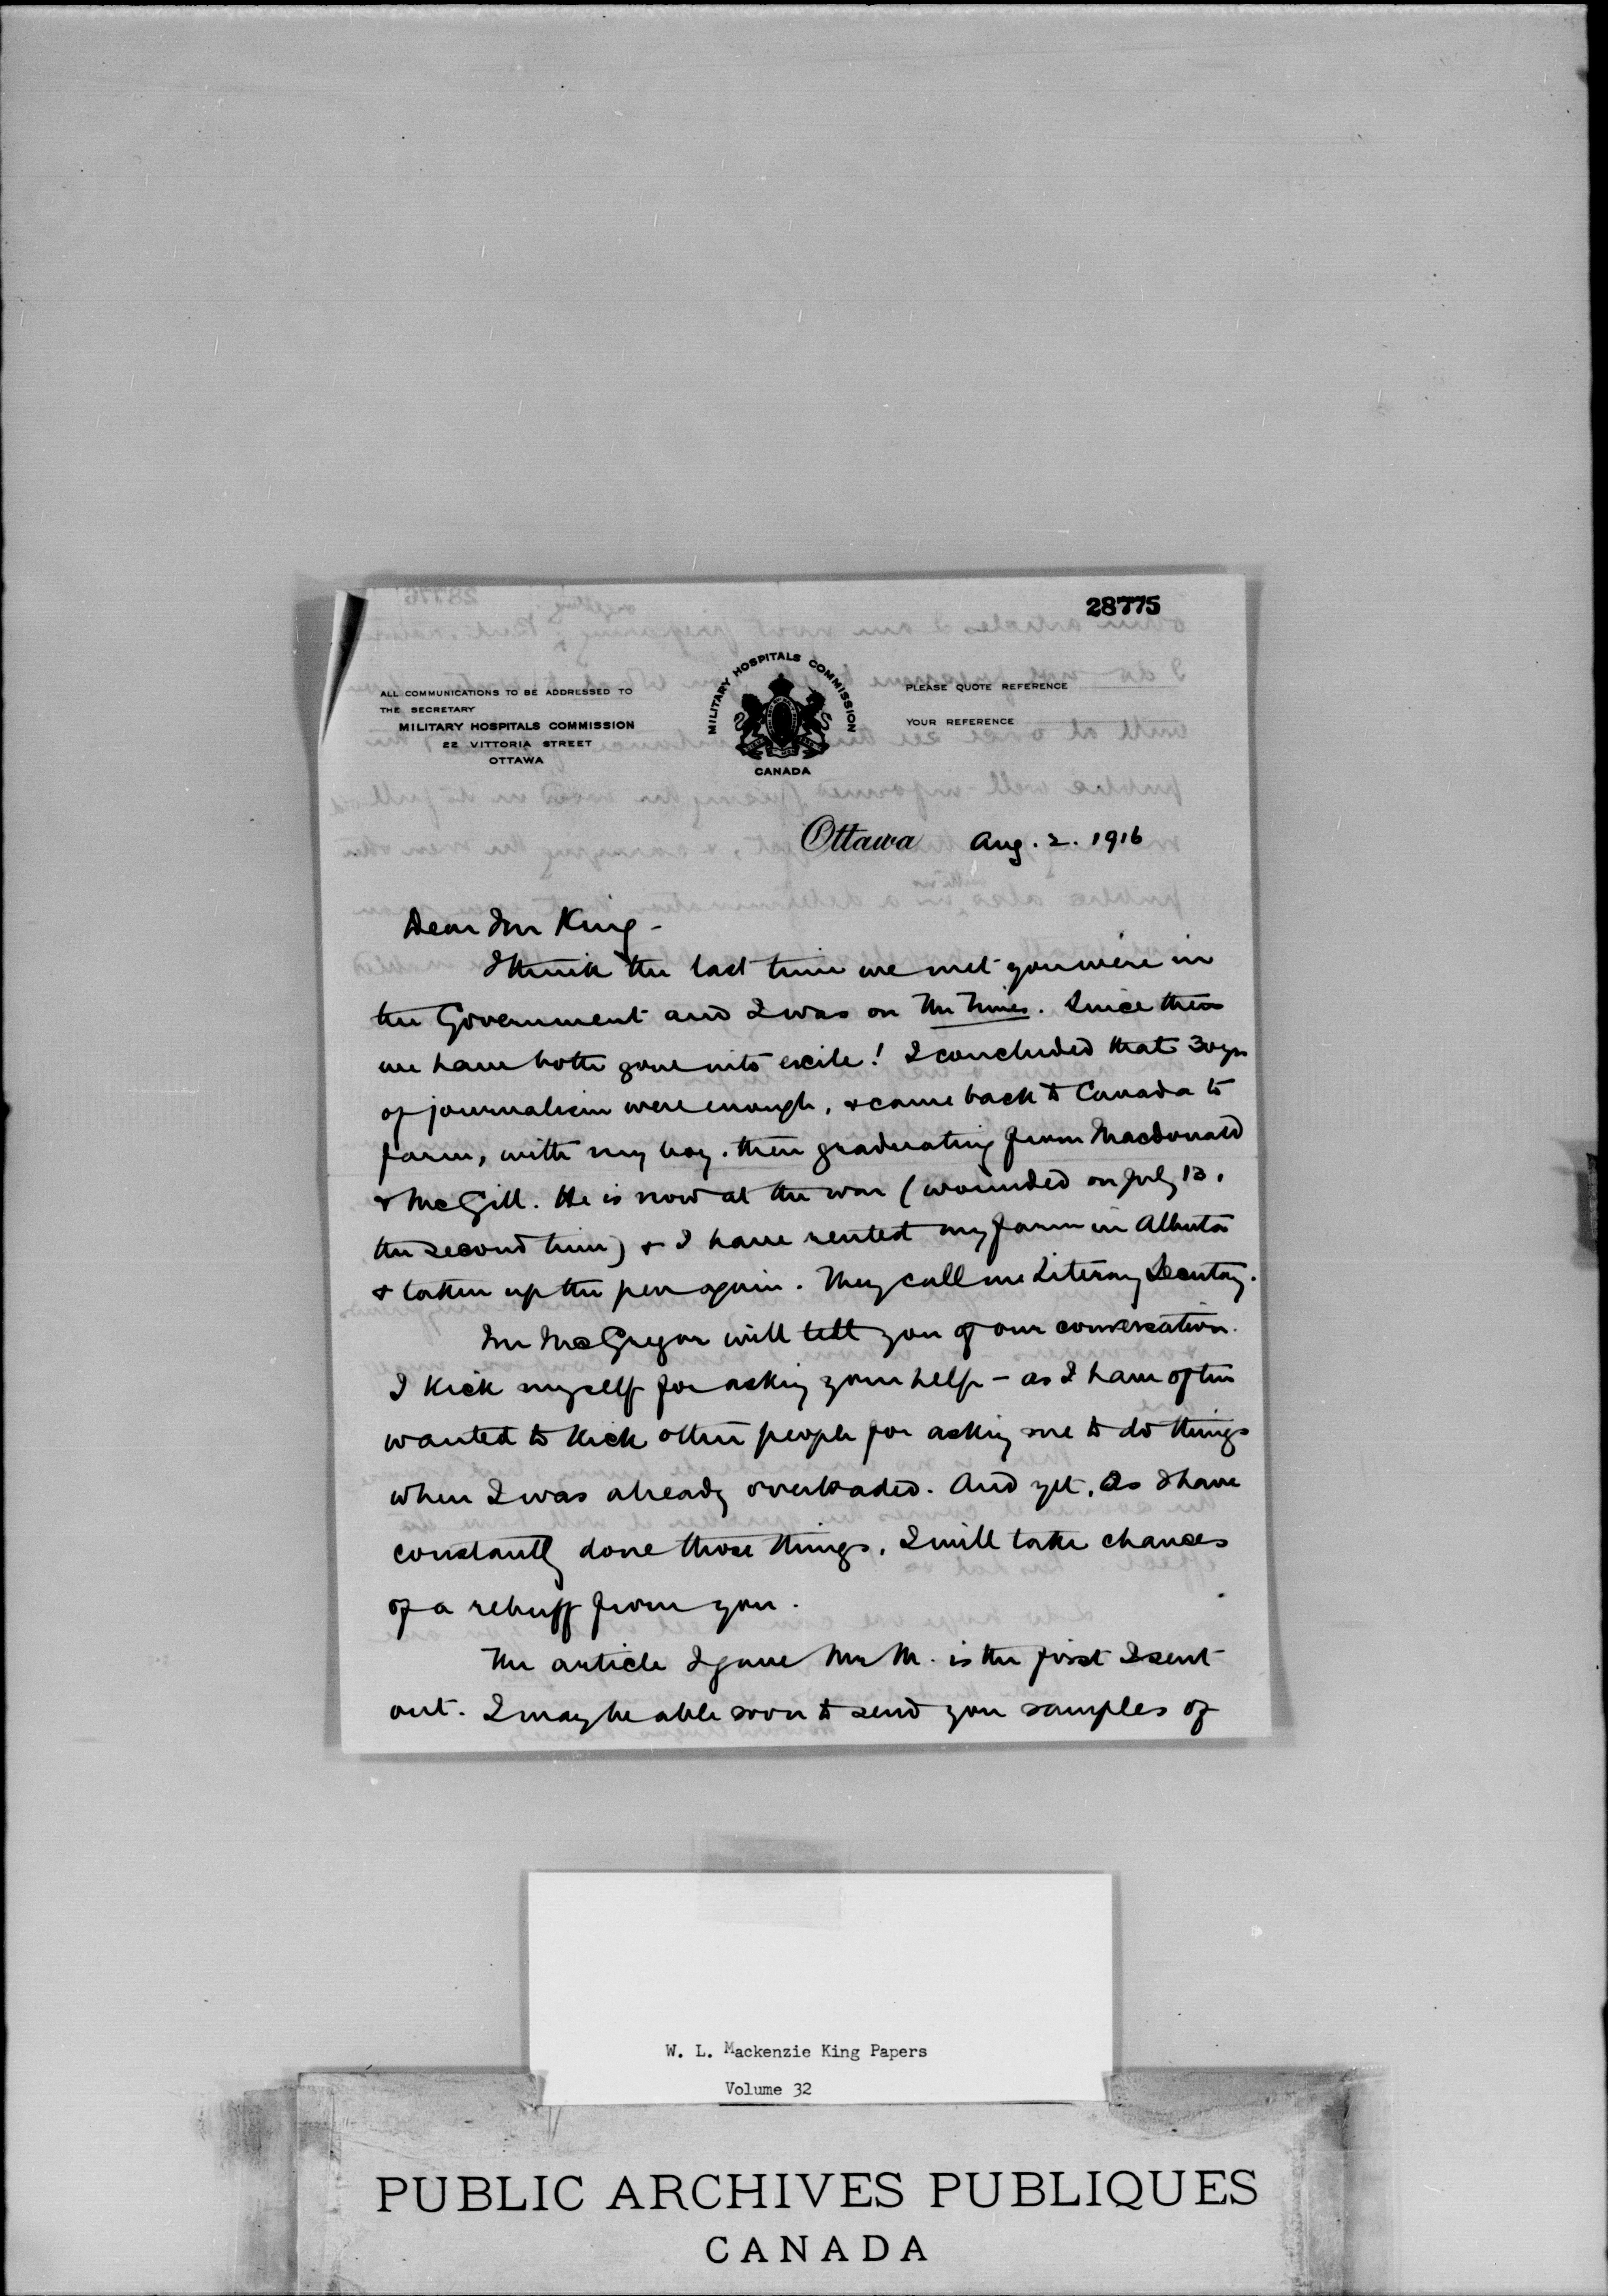 28775
ALL COMMUNICATIONS TO BE ADDRESSED TO
THE SECRETARY
MILITARY HOSPITALS COMMISSION
22 VITTORIA STREET
OTTAWA
MILITARY HOSPITALS COMMISSION
CANADA
PLEASE QUOTE REFERENCE
YOUR REFERENCE
Ottawa Aug. 2. 1916
Dear Mr King -
I think the last time we met you were in
the Government and I was on The Times. Since then
we have both gone into exile! I concluded that 30 yrs
of journalism were enough, & came back to Canada to
farm, with my boy, then graduating from Macdonald
& McGill. He is now at the war (wounded on July 13,
the second time) & I have rented my farm in Alberta
& taken up the pen again. They call me Literary Secretary.
Mr McGregor will tell you of our conversation.
I kick myself for asking your help - as I have often
wanted to kick other people for asking me to do things
when I was already overloaded. And yet, as I have
constantly done those things, I will take chances
of a rebuff from you.
The article I gave Mr M. is the first I sent
out. I may be able soon to send you samples of
W. L. Mackenzie King Papers
Volume 32
PUBLIC ARCHIVES PUBLIQUES
CANADA